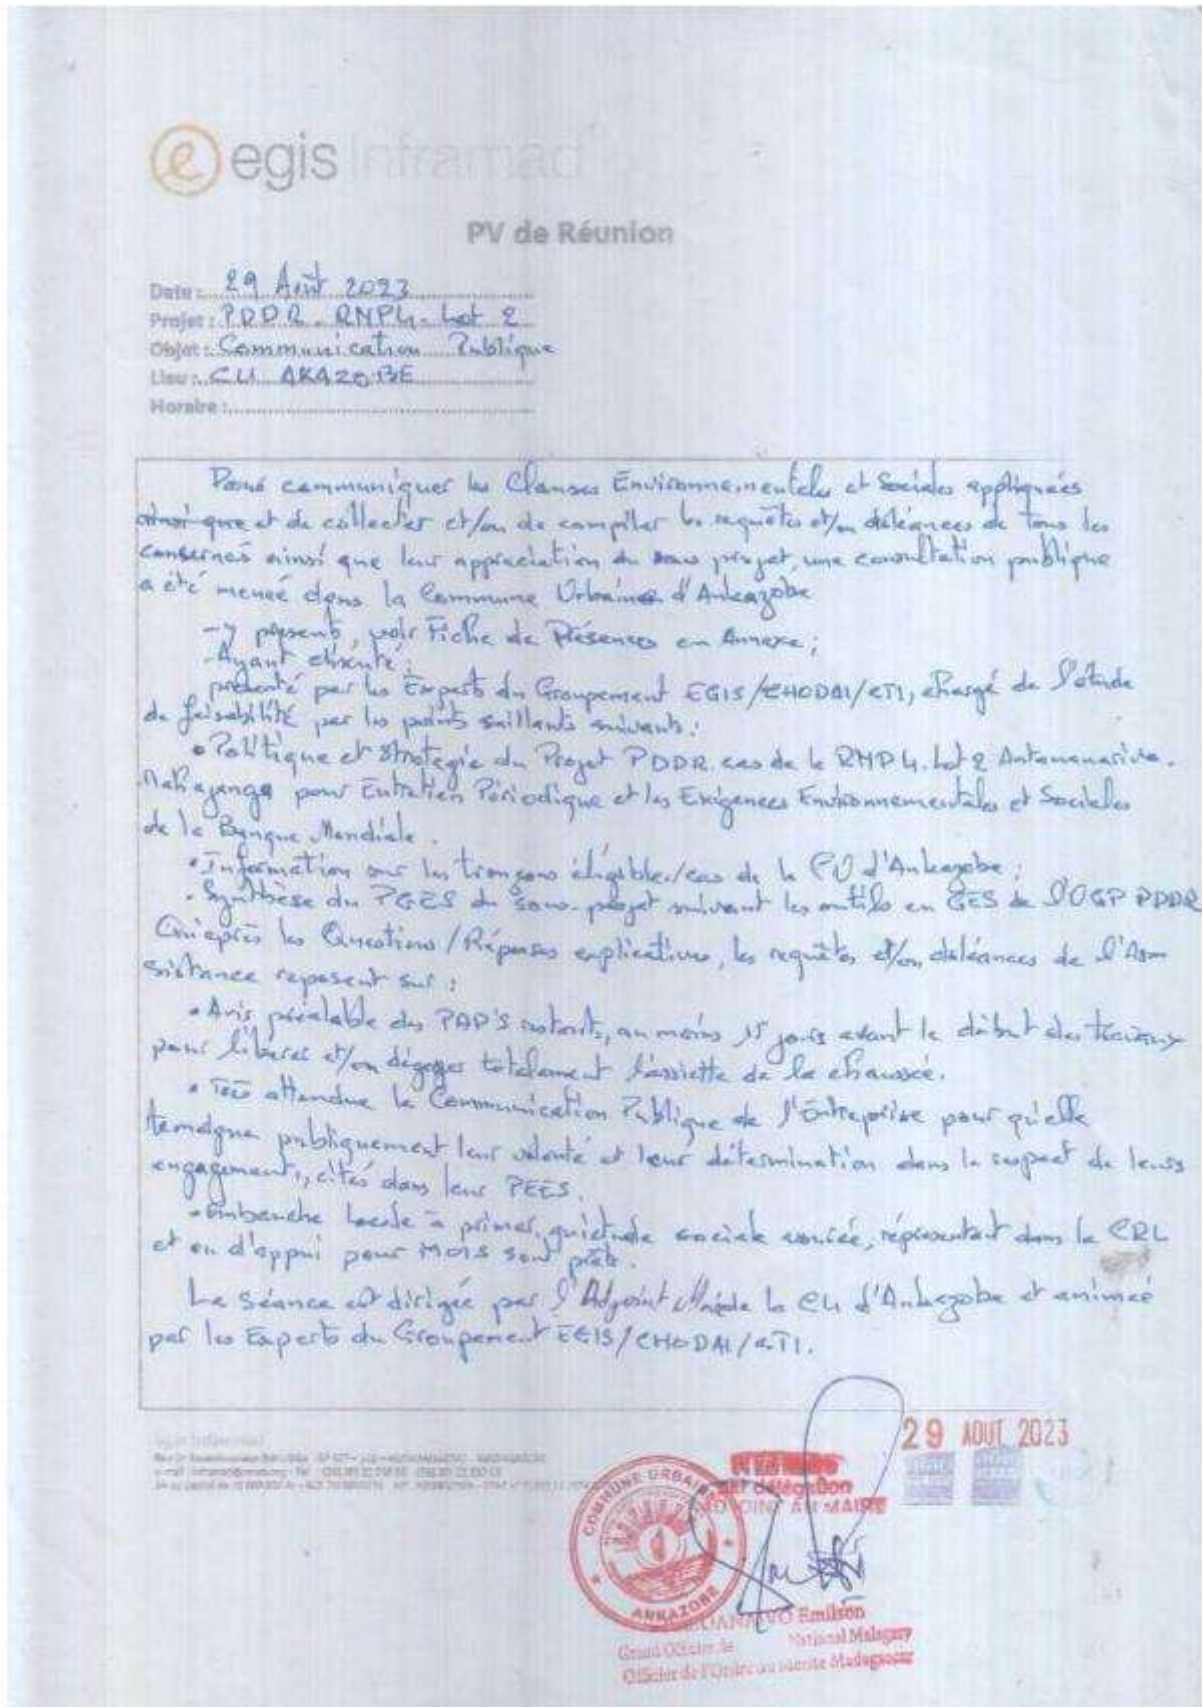 egis Inframad
PV de Réunion
Date : 29 Août 2023
Projet : PDDR - RNP4 - Lot 2
Objet : Communication Publique
Lieu : CU AKAZOBE
Horaire :
Pour communiquer les Clauses Environnementales et Sociales appliquées
ainsi que et de collecter et/ou de compiler les requêtes et/ou doléances de tous les
concernés ainsi que leur appréciation du sous projet, une consultation publique
a été menée dans la Commune Urbaine d'Ankazobe
- y présents, voir Fiche de Présences en Annexe ;
- Ayant
présenté par les Experts du Groupement EGIS/CHODAI/CTI, chargé de l'étude
de faisabilité par les points saillants suivants :
• Politique et stratégie du Projet PDDR cas de la RNP4. Lot 2 Antananarivo.
Mahajanga pour Entretien Périodique et les Exigences Environnementales et Sociales
de la Banque Mondiale.
• Information sur les tronçons éligibles/cas de la CU d'Ankazobe ;
• Synthèse du PGES du sous-projet suivant les outils en GES de l'OGP PDDR
les Questions/Réponses explicatives, les requêtes et/ou doléances de l'Assistance reposent sur :
• Avis préalable des PAPS, au moins 15 jours avant le début des travaux
pour libérer et/ou dégager totalement l'assiette de la chaussée.
• attendue la Communication Publique de l'Entreprise pour qu'elle
témoigne publiquement leur volonté et leur détermination dans le respect de leurs
engagements, cités dans leur PEES.
• Embauche locale à primer, quiétude sociale, représentant dans le CRL
et ou d'appui pour MOIS sont prêts.
La séance est dirigée par l'Adjoint de la CU d'Ankazobe et animée
par les Experts du Groupement EGIS/CHODAI/CTI.
29 AOUT 2023
par délégation
ADJOINT AU MAIRE
COMMUNE URBAINE
ANKAZOBE
Emilson
Grand Officier de National Malagasy
Officier de l'Ordre du Mérite Madagascar